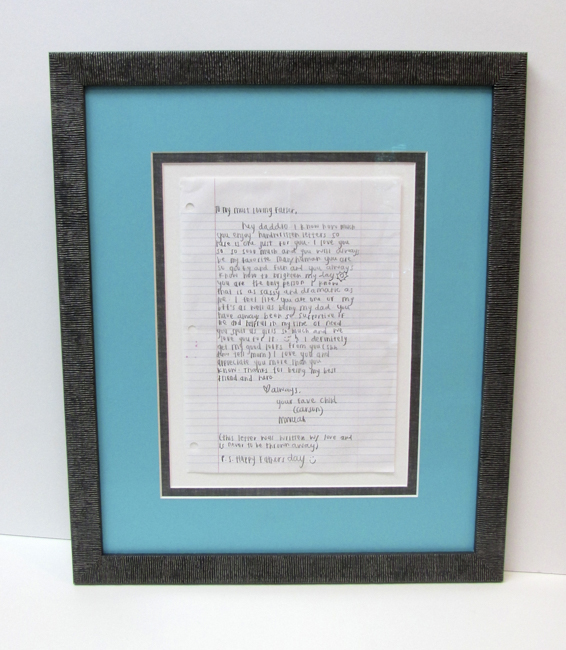 To my most loving Father,
Hey daddio I know how much
you enjoy handwritten letters so
here is one just for you. I love you
so so so much and you will always
be my favorite man/human you are
so goofy and fun and you always
know how to brighten my day
you are the only person I know
that is as sassy and dramatic as
me. I feel like you are one of my
bff's as well as being my dad. you
have always been so supportive of
me and helped in my time of need
you spoil us girls so much and we
love you for it. I definitely
get my good looks from you (shh
don't tell mom) I love you and
appreciate you more than you
know. Thanks for being my best
friend and hero
always,
your fave child
(this letter was written w/ love and
is never to be thrown away)
P.S. Happy Fathers day